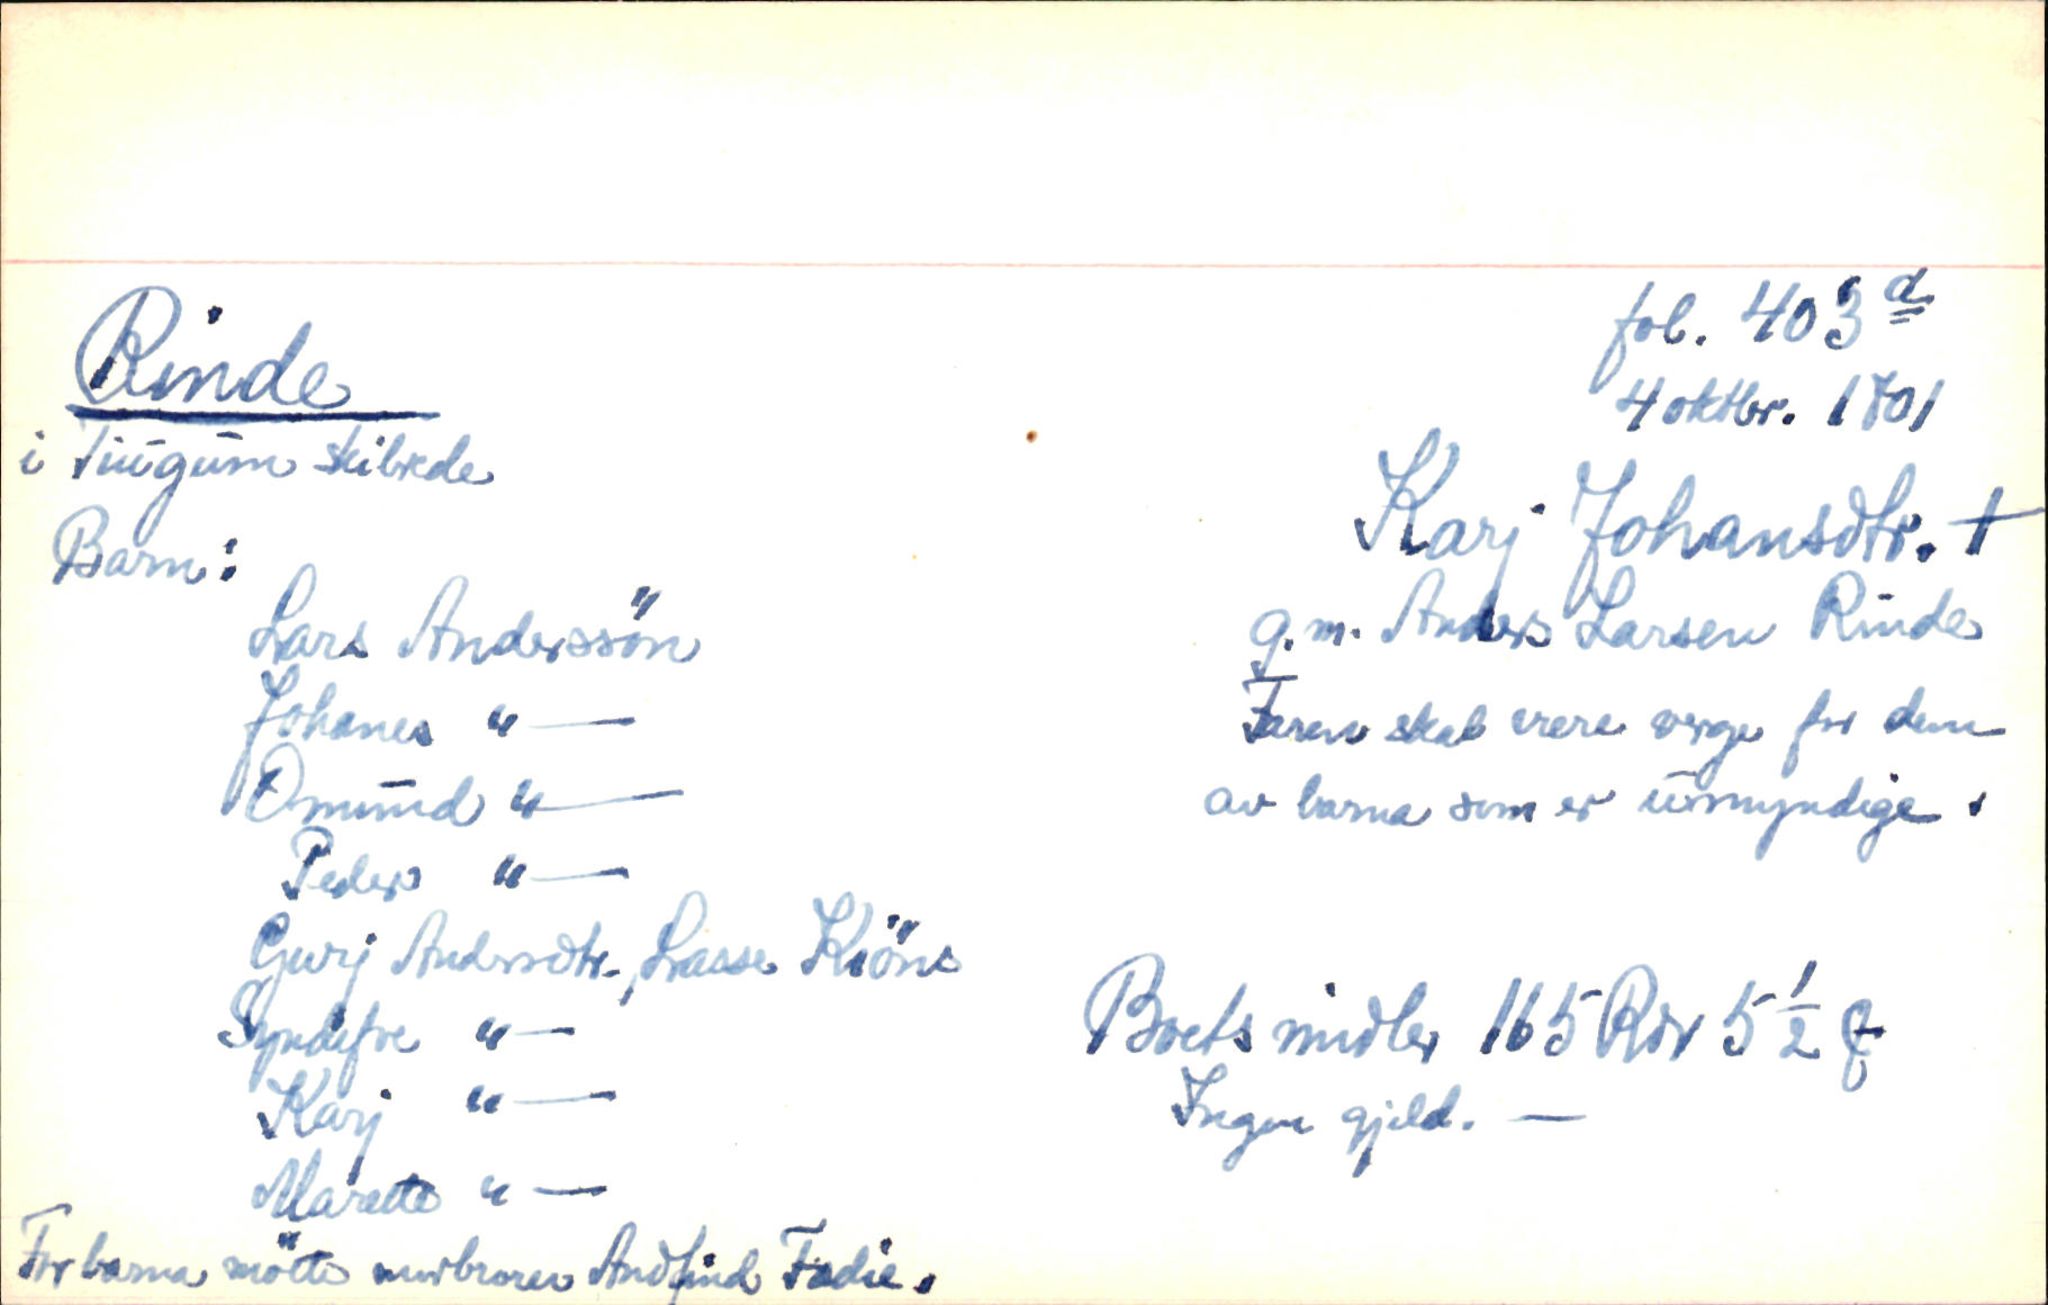 fol. 403 a
4 oktbr. 1701
Rinde
i Tiugum skibrede
Karj Johansdtr. †
g.m. Anders Larsen Rinde
Faren skal være verge for dem
av barna som er umyndige.
Barn:
Lars Anderssön
Johanes " —
Omund " —
Peder " —
Gurj Andersdtr., Lasse Kiöns
Syndefve " —
Karj " —
Marette " —
For barna mötte morbroren Andfind Fadie.
Boets midler 165 Rdr 5 1/2
Ingen gjeld. —